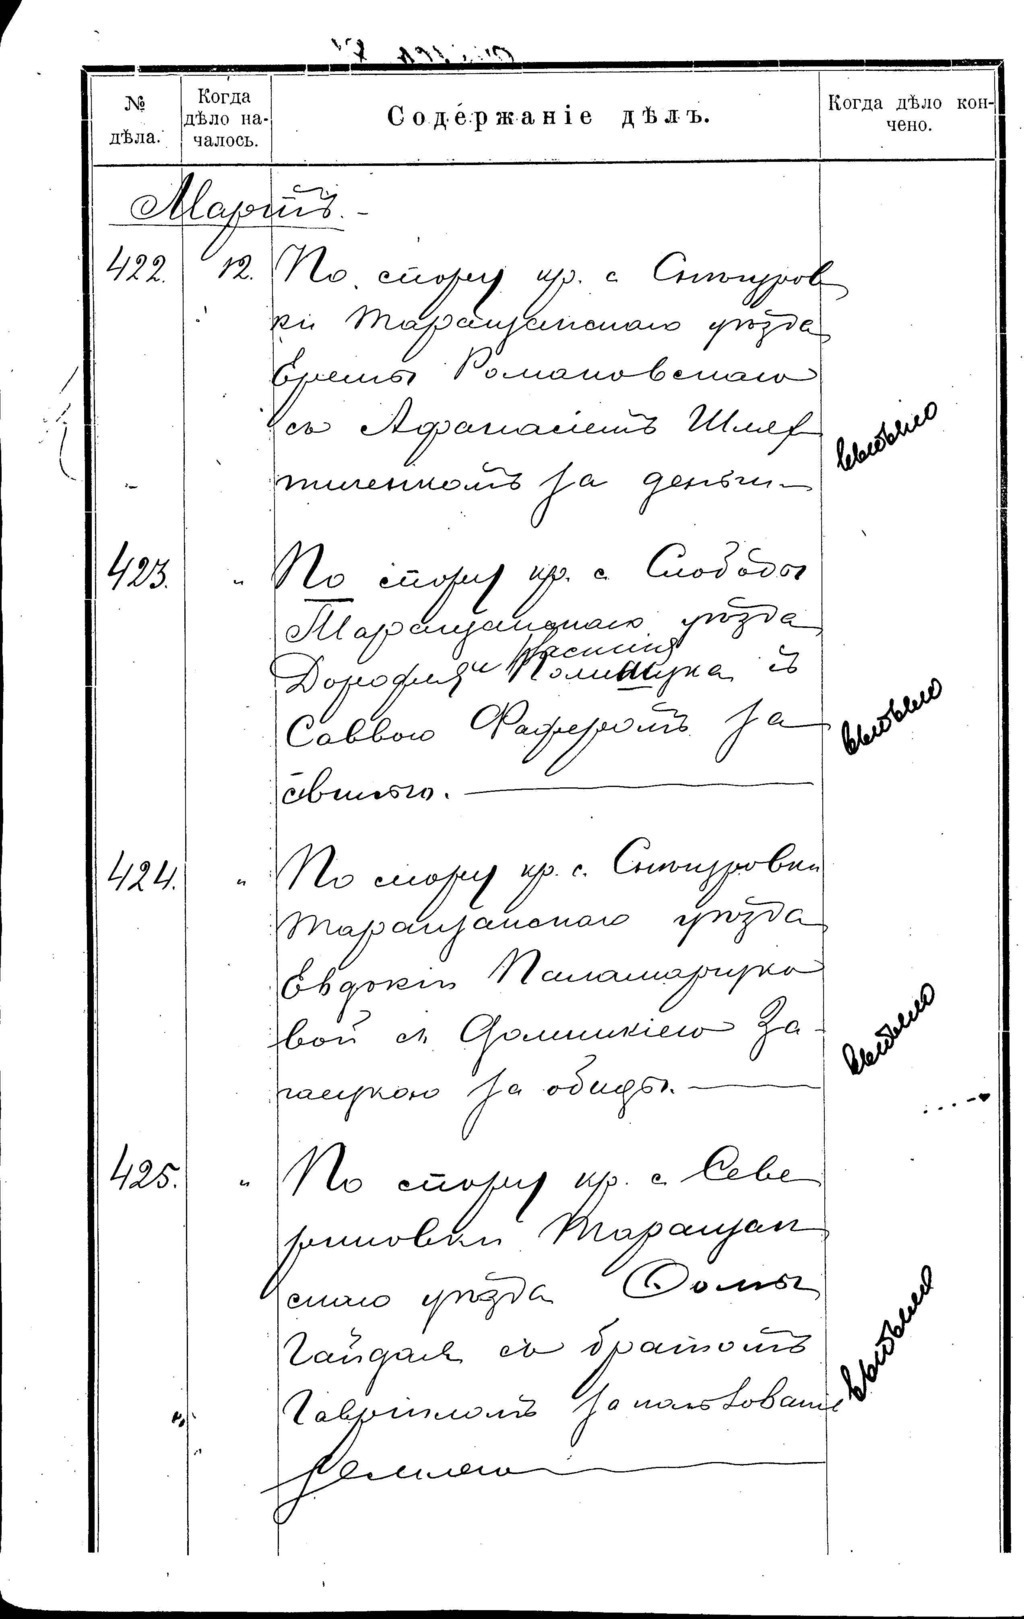 № дѣла.
Когда дѣло началось.
Содержаніе дѣлъ.
Когда дѣло кончено.
Мартъ.-
422. 12. По спору кр. с Снѣгуров
ки Таращанскаго уѣзда
Еремы Романовскаго
съ Афанасіемъ Шлях
тиченкомъ за деньги
выбыло
423. " По спору кр. с. Слободы
Таращанскаго уѣзда
Дорофея и Василія
Полищука съ
Саввою за
свинью.
выбыло
424. " По спору кр. с. Снѣгуровки
Таращанскаго уѣзда
Евдокіи Паламарчуко
вой съ Домникіею За-
за обиды.
выбыло
425. " По спору кр. с. Севе
риновки Таращан
скаго уѣзда Ѳомы
Гайдая съ братомъ
Гавриломъ за пользованіе
землею
выбыло